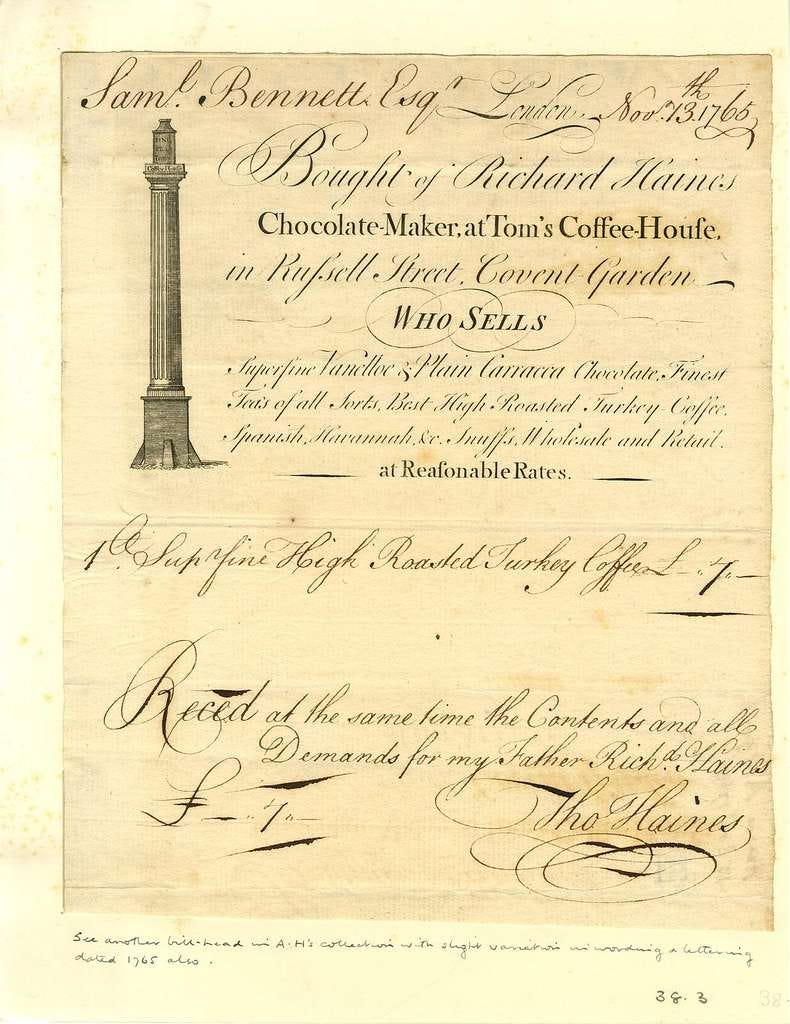 Saml. Bennett. Esqr. London, Novr. 13th. 1765
FINE
TEA
Coffee House
Bought of Richard Haines
Chocolate-Maker, at Tom's Coffee-Houſe,
in Ruſsell Street. Covent-Garden
WHO SELLS
Superfine Vanelloe & Plain Carracca Chocolate, Finest
Tea's of all Sorts, Best High Roasted Turkey Coffee,
Spanish, Havannah, &c. Snuffs, Wholesale and Retail.
at Reaſonable Rates.
1 Suprfine High Roasted Turkey Coffee £ — ,, 7 ,, —
Reced at the same time the Contents and all
Demands for my Father Richd. Haines
£ — ,, 7 ,, — Tho Haines
See another bill-head in A.H's collection with slight variation in wording & lettering
dated 1765 also.
38.3
38.